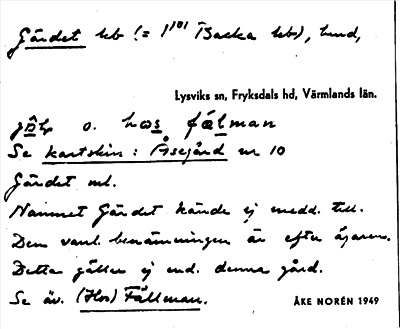 Gärdet lsb (= 1¹⁰¹ Backa lsb), hmd,
Lysviks sn, Fryksdals hd, Värmlands län.
o. hos fälman
Se kartskiss: Åsegård nr 10
Gärdet ml.
Namnet Gärdet kände ej medd. till.
Den vanl. benämningen är efter ägaren.
Detta gäller ej end. denna gård.
Se äv. (Hos) Fällman.
ÅKE NORÉN 1949